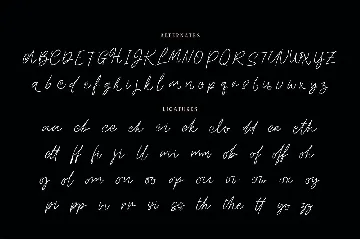 ALTERNATES
ABCDEFGHIJKLMNOPQRSTUVWXYZ
abcdefghijklmnopqrstuvwxyz
LIGATURES
an ch ce ck in ok clo dd ea eth
dt ff fr fi ll mi mn ob of off oh
oj ol om on oo op ou or ov ox oy
pi pp rr si ss th the tt yo